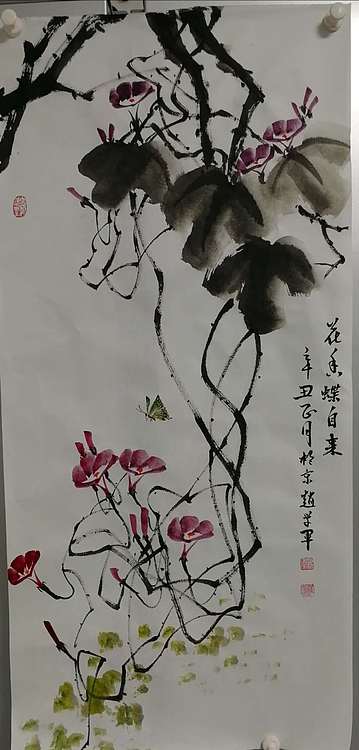 花香蝶自来
辛丑正月於京赵学军